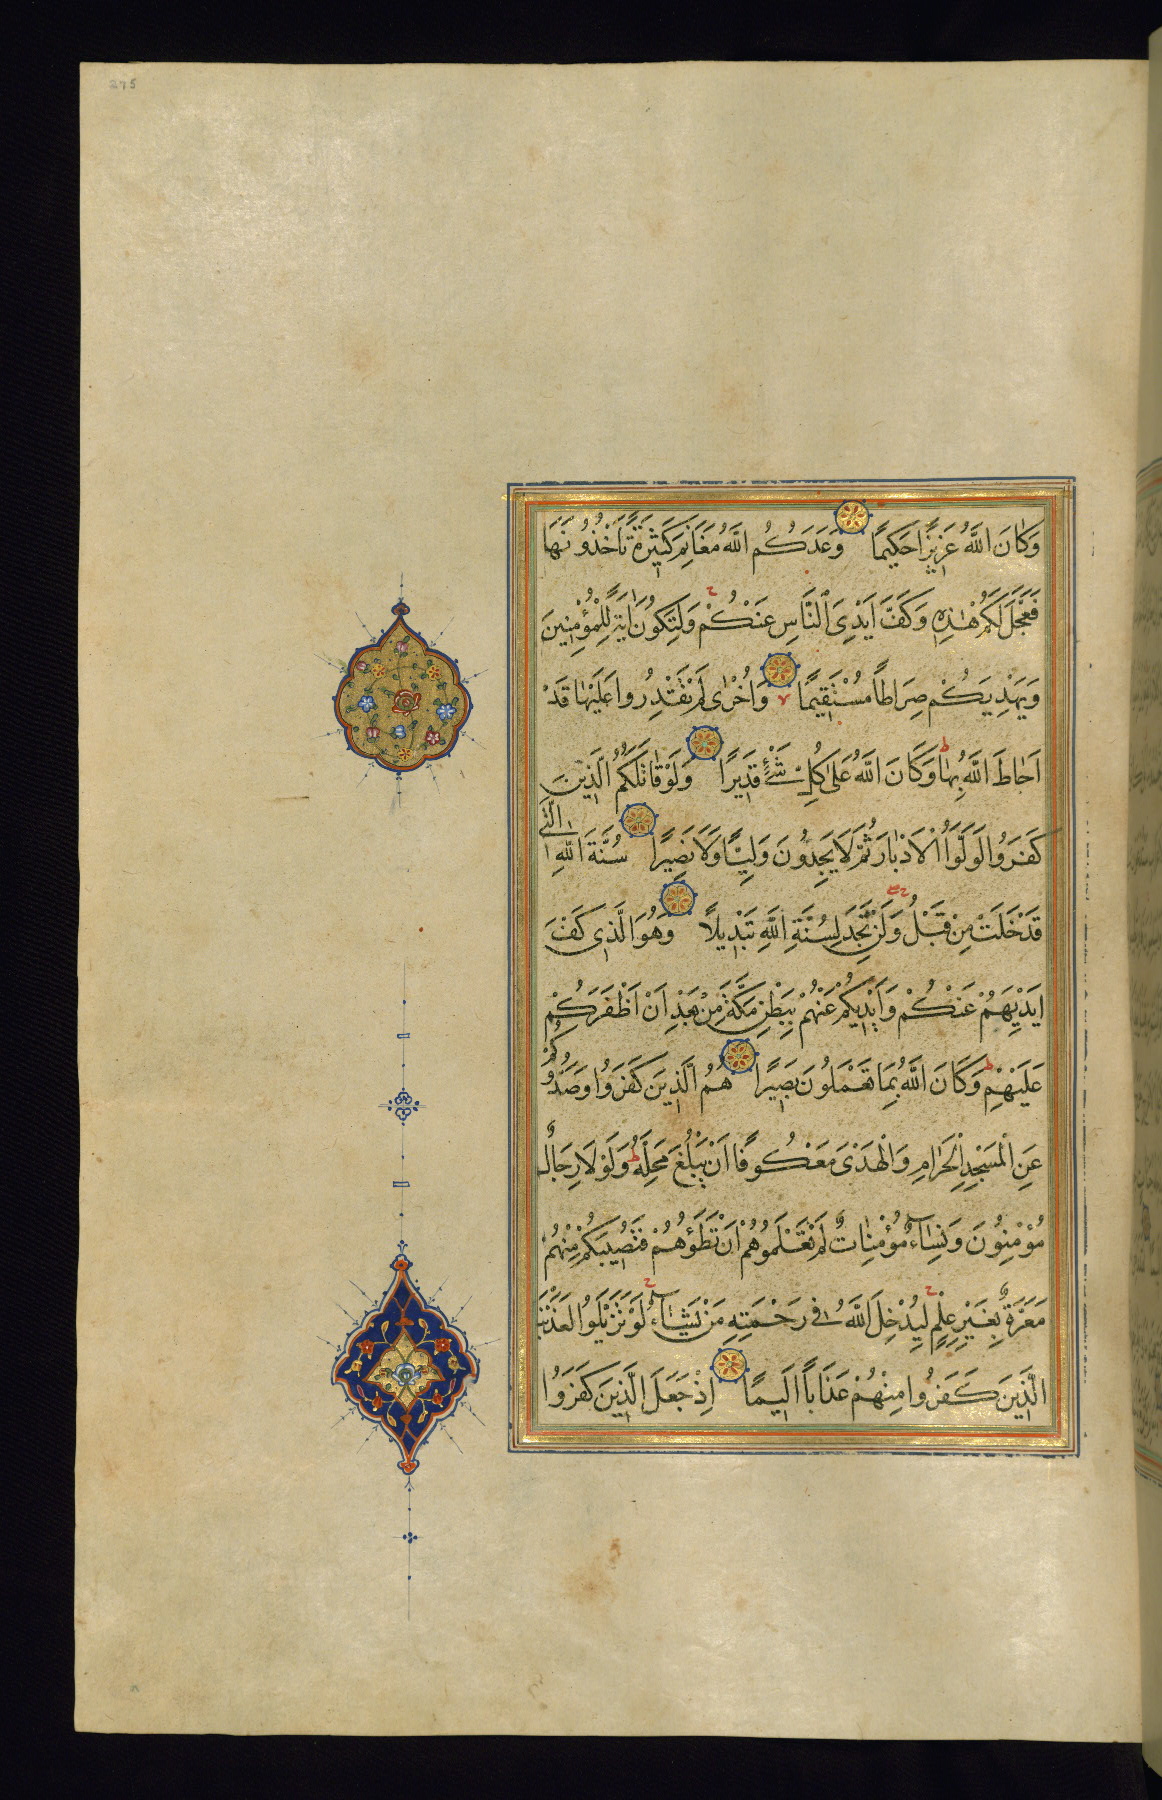 275
وَكَانَ اللَّهُ عَزِيزًا حَكِيمًا وَعَدَكُمُ اللَّهُ مَغَانِمَ كَثِيرَةً تَأْخُذُونَهَا
فَعَجَّلَ لَكُمْ هٰذِهِ وَكَفَّ أَيْدِيَ النَّاسِ عَنْكُمْ وَلِتَكُونَ اٰيَةً لِلْمُؤْمِنِينَ
وَيَهْدِيَكُمْ صِرَاطًا مُسْتَقِيمًا وَاُخْرٰى لَمْ تَقْدِرُوا عَلَيْهَا قَدْ
اَحَاطَ اللَّهُ بِهَا وَكَانَ اللَّهُ عَلٰى كُلِّ شَيْءٍ قَدِيرًا وَلَوْ قَاتَلَكُمُ الَّذِينَ
كَفَرُوا لَوَلَّوُا الْاَدْبَارَ ثُمَّ لَا يَجِدُونَ وَلِيًّا وَلَا نَصِيرًا سُنَّةَ اللَّهِ الَّتِي
قَدْ خَلَتْ مِنْ قَبْلُ وَلَنْ تَجِدَ لِسُنَّةِ اللَّهِ تَبْدِيلًا وَهُوَ الَّذِي كَفَّ
اَيْدِيَهُمْ عَنْكُمْ وَاَيْدِيَكُمْ عَنْهُمْ بِبَطْنِ مَكَّةَ مِنْ بَعْدِ اَنْ اَظْفَرَكُمْ
عَلَيْهِمْ وَكَانَ اللَّهُ بِمَا تَعْمَلُونَ بَصِيرًا هُمُ الَّذِينَ كَفَرُوا وَصَدُّوكُمْ
عَنِ الْمَسْجِدِ الْحَرَامِ وَالْهَدْيَ مَعْكُوفًا اَنْ يَبْلُغَ مَحِلَّهُ وَلَوْلَا رِجَالٌ
مُؤْمِنُونَ وَنِسَاءٌ مُؤْمِنَاتٌ لَمْ تَعْلَمُوهُمْ اَنْ تَطَؤُهُمْ فَتُصِيبَكُمْ مِنْهُمْ
مَعَرَّةٌ بِغَيْرِ عِلْمٍ لِيُدْخِلَ اللَّهُ فِي رَحْمَتِهِ مَنْ يَشَاءُ لَوْ تَزَيَّلُوا لَعَذَّبْنَا
الَّذِينَ كَفَرُوا مِنْهُمْ عَذَابًا اَلِيمًا اِذْ جَعَلَ الَّذِينَ كَفَرُوا